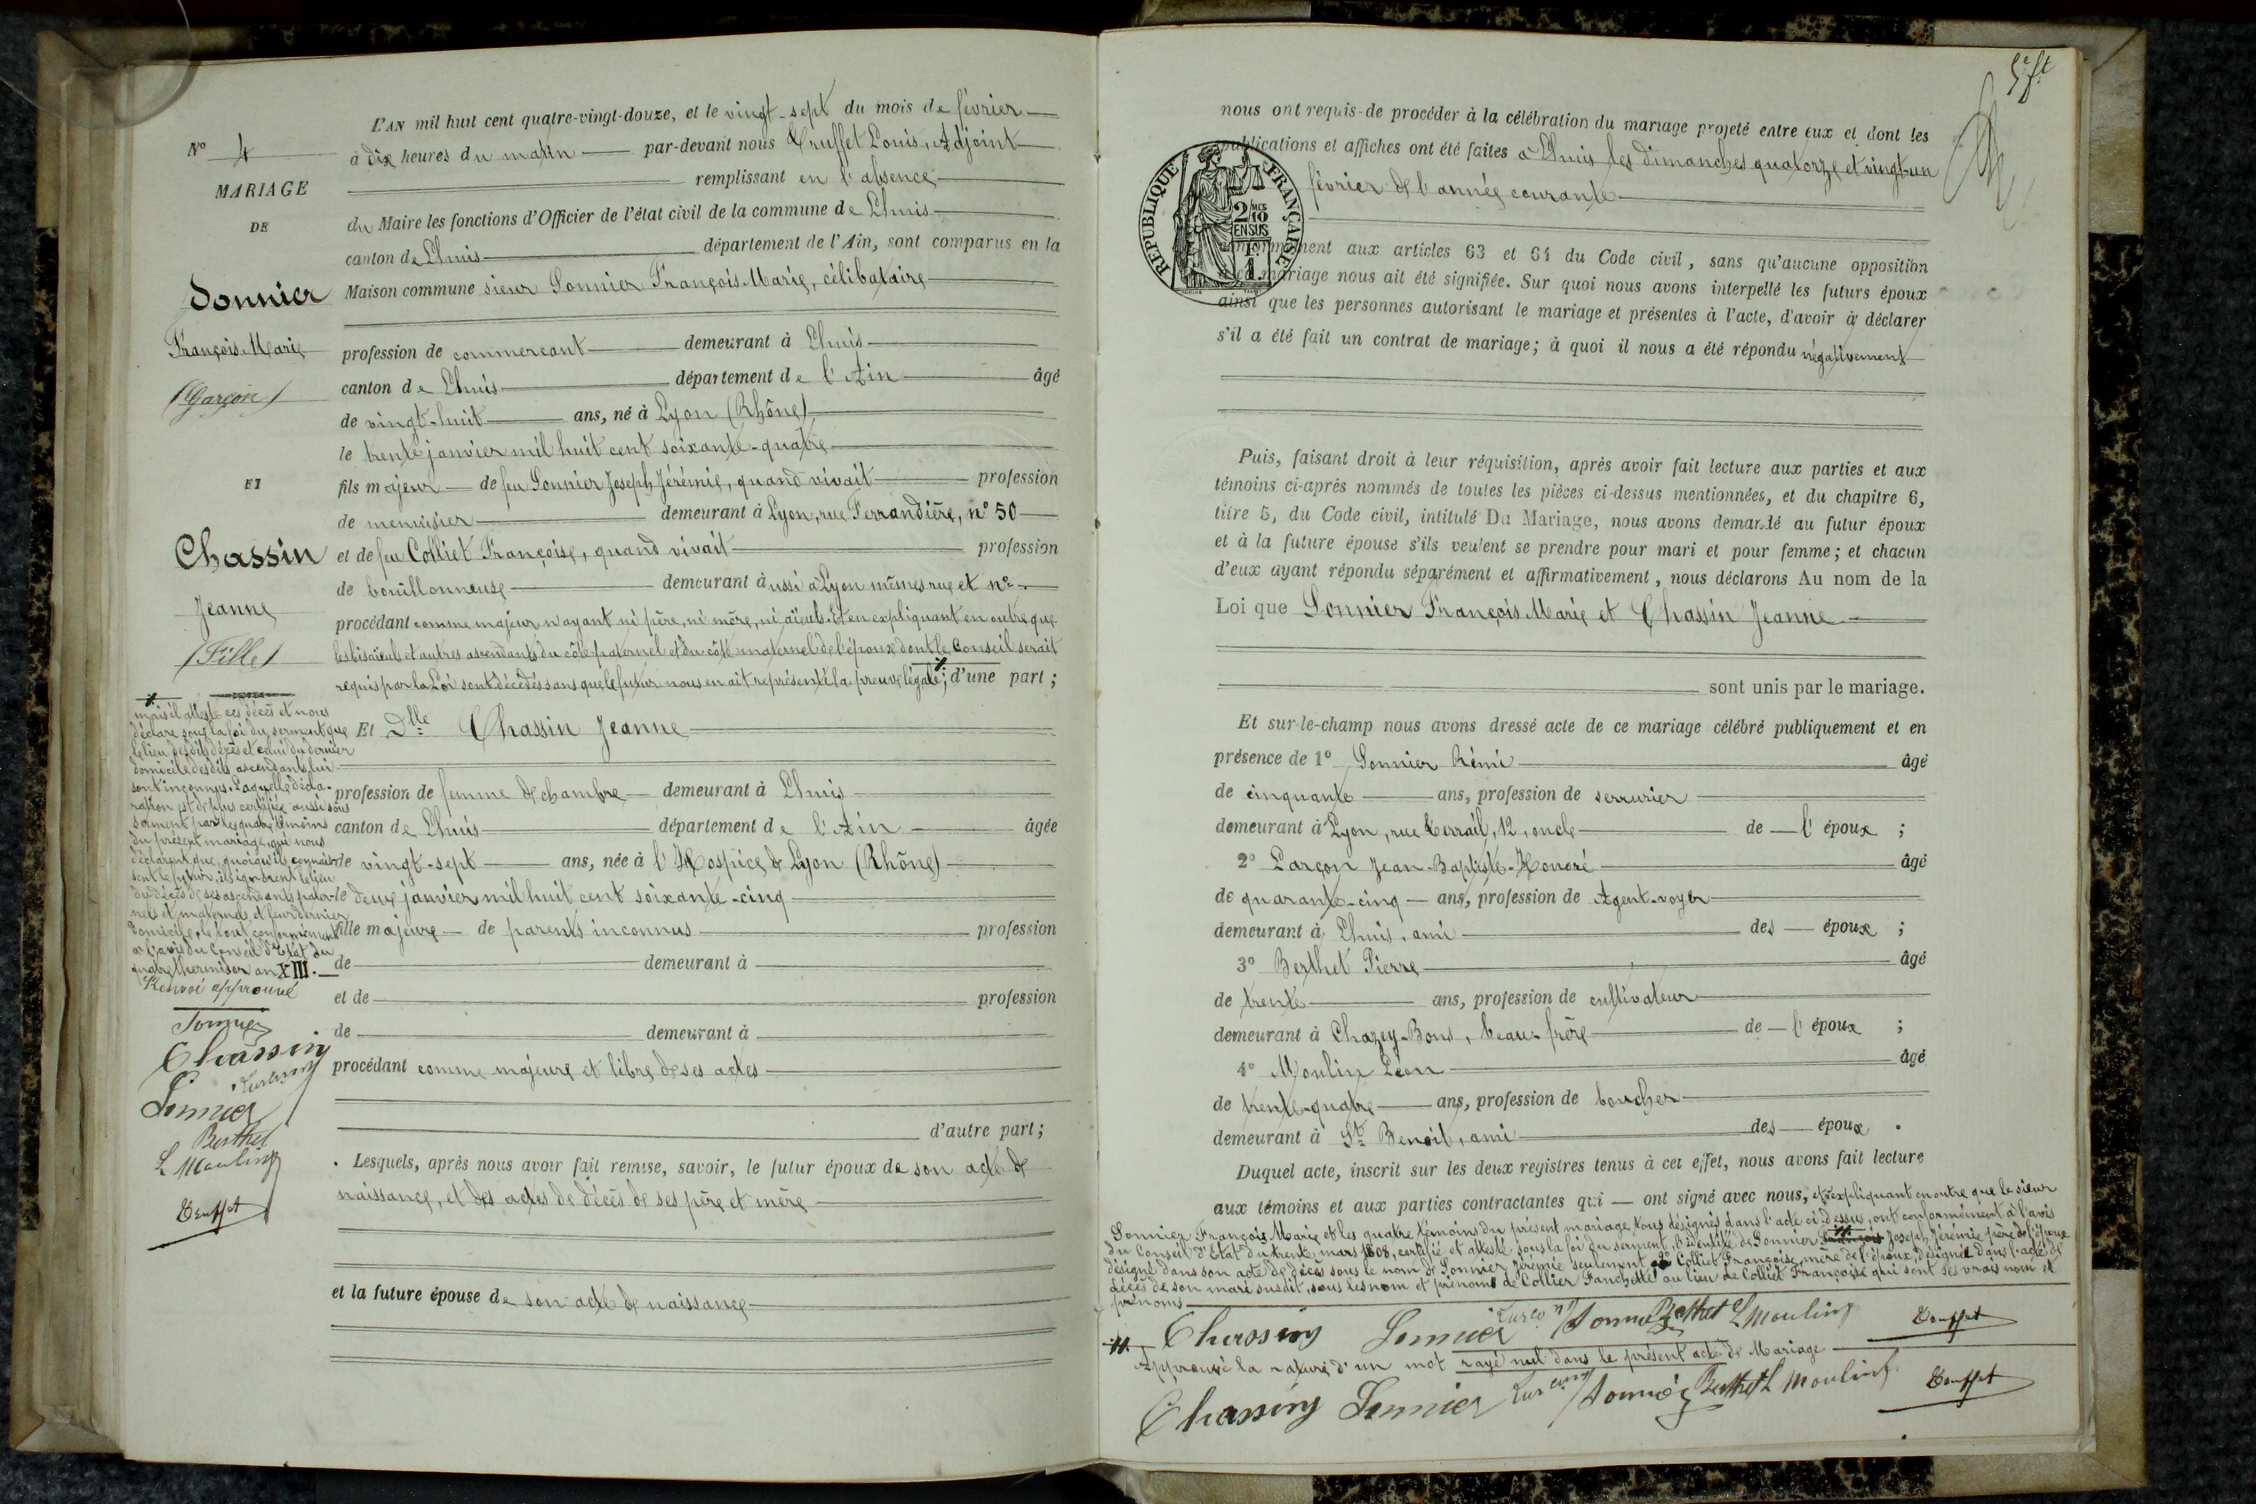 L'AN mil huit cent quatre-vingt-douze, et le vingt-sept du mois de février
à dix heures du matin par-devant nous Truffet Louis, Adjoint
remplissant en l'absence
du Maire les fonctions d'Officier de l'état civil de la commune de Lhuis
canton de Lhuis département de l'Ain, sont comparus en la
Maison commune sieur Sonnier François-Marie, célibataire
profession de commerçant demeurant à Lhuis
canton de Lhuis département de l'Ain âgé
de vingt-huit ans, né à Lyon (Rhône)
le trente janvier mil huit cent soixante-quatre
fils majeur de feu Sonnier Joseph Jérémie, quand vivait profession
de menuisier demeurant à Lyon, rue Ferrandière, n° 50
et de feu Colliet Françoise, quand vivait profession
de bouillonneuse demeurant aussi à Lyon mêmes rue et n°
procédant comme majeur n'ayant ni père, ni mère, ni aïeuls. Et en expliquant en outre que
les bisaïeuls et autres ascendants du côté paternel et du côté maternel de l'époux dont le Conseil serait
requis par la Loi sont décédés sans que le futur nous en ait représenté la preuve légale; d'une part;
Et Dlle Chassin Jeanne
profession de femme de chambre demeurant à Lhuis
canton de Lhuis département de l'Ain âgée
de vingt-sept ans, née à l'Hospice de Lyon (Rhône)
le deux janvier mil huit cent soixante-cinq
fille majeure de parents inconnus profession
de demeurant à
et de profession
de demeurant à
procédant comme majeure et libre de ses actes
d'autre part;
Lesquels, après nous avoir fait remise, savoir, le futur époux de son acte de
naissance, et des actes de décès de ses père et mère
et la future épouse de son acte de naissance
N° 4
MARIAGE
DE
Sonnier
François-Marie
(Garçon)
ET
Chassin
Jeanne
(Fille)
mais il atteste ces décès et nous
déclare sous la foi du serment que
le lieu desdits décès et celui du dernier
domicile desdits ascendants lui
sont inconnus. Laquelle décla-
ration est de plus certifiée aussi sous
serment par les quatre témoins
du présent mariage, qui nous
déclarent que, quoiqu'ils connais-
sent le futur, ils ignorent le lieu
du décès de ses ascendants pater-
nels et maternels et leur dernier
domicile, le tout conformément
à l'avis du Conseil d'Etat du
quatre thermidor an XIII.
Renvoi approuvé
Sonnier
Chassin
Larçon
Sonnier
Berthet
L Moulin
Truffet
5e ft
nous ont requis de procéder à la célébration du mariage projeté entre eux et dont les
publications et affiches ont été faites à Lhuis les dimanches quatorze et vingt-un
février de l'année courante
RÉPUBLIQUE FRANÇAISE
2/10
EN SUS
1
conformément aux articles 63 et 64 du Code civil, sans qu'aucune opposition
mariage nous ait été signifiée. Sur quoi nous avons interpellé les futurs époux
ainsi que les personnes autorisant le mariage et présentes à l'acte, d'avoir à déclarer
s'il a été fait un contrat de mariage; à quoi il nous a été répondu négativement
Puis, faisant droit à leur réquisition, après avoir fait lecture aux parties et aux
témoins ci-après nommés de toutes les pièces ci-dessus mentionnées, et du chapitre 6,
titre 5, du Code civil, intitulé Du Mariage, nous avons demandé au futur époux
et à la future épouse s'ils veulent se prendre pour mari et pour femme; et chacun
d'eux ayant répondu séparément et affirmativement, nous déclarons Au nom de la
Loi que Sonnier François-Marie et Chassin Jeanne
sont unis par le mariage.
Et sur-le-champ nous avons dressé acte de ce mariage célébré publiquement et en
présence de 1° Sonnier Rémi âgé
de cinquante ans, profession de serrurier
demeurant à Lyon, rue Terrail, 12, oncle de l'époux;
2° Larçon Jean-Baptiste-Honoré âgé
de quarante-cinq ans, profession de Agent-voyer
demeurant à Lhuis, ami des époux;
3° Berthet Pierre âgé
de trente ans, profession de cultivateur
demeurant à Chazey-Bons, beau-frère de l'époux;
4° Moulin Léon âgé
de trente-quatre ans, profession de boucher
demeurant à St Benoit, ami des époux.
Duquel acte, inscrit sur les deux registres tenus à cet effet, nous avons fait lecture
aux témoins et aux parties contractantes qui ont signé avec nous, et expliquant en outre que le sieur
Sonnier François-Marie et les quatre témoins du présent mariage, tous désignés dans l'acte ci-dessus, ont conformément à l'avis
du Conseil d'Etat du trente mars 1808, certifié et attesté, sous la foi du serment, l'identité de Sonnier Joseph Jérémie père de l'époux
désigné dans son acte de décès sous le nom de Sonnier Jérémie seulement, de Colliet Françoise, mère de l'époux, désignée dans l'acte de
décès de son mari susdit, sous les nom et prénoms de Collier Fanchette au lieu de Colliet Françoise qui sont ses vrais nom et
prénoms
Chassin Sonnier Larçon Sonnier Berthet L Moulin Truffet
Approuvé la rature d'un mot rayé nul dans le présent acte de Mariage
Chassin Sonnier Larçon Sonnier Berthet L Moulin Truffet